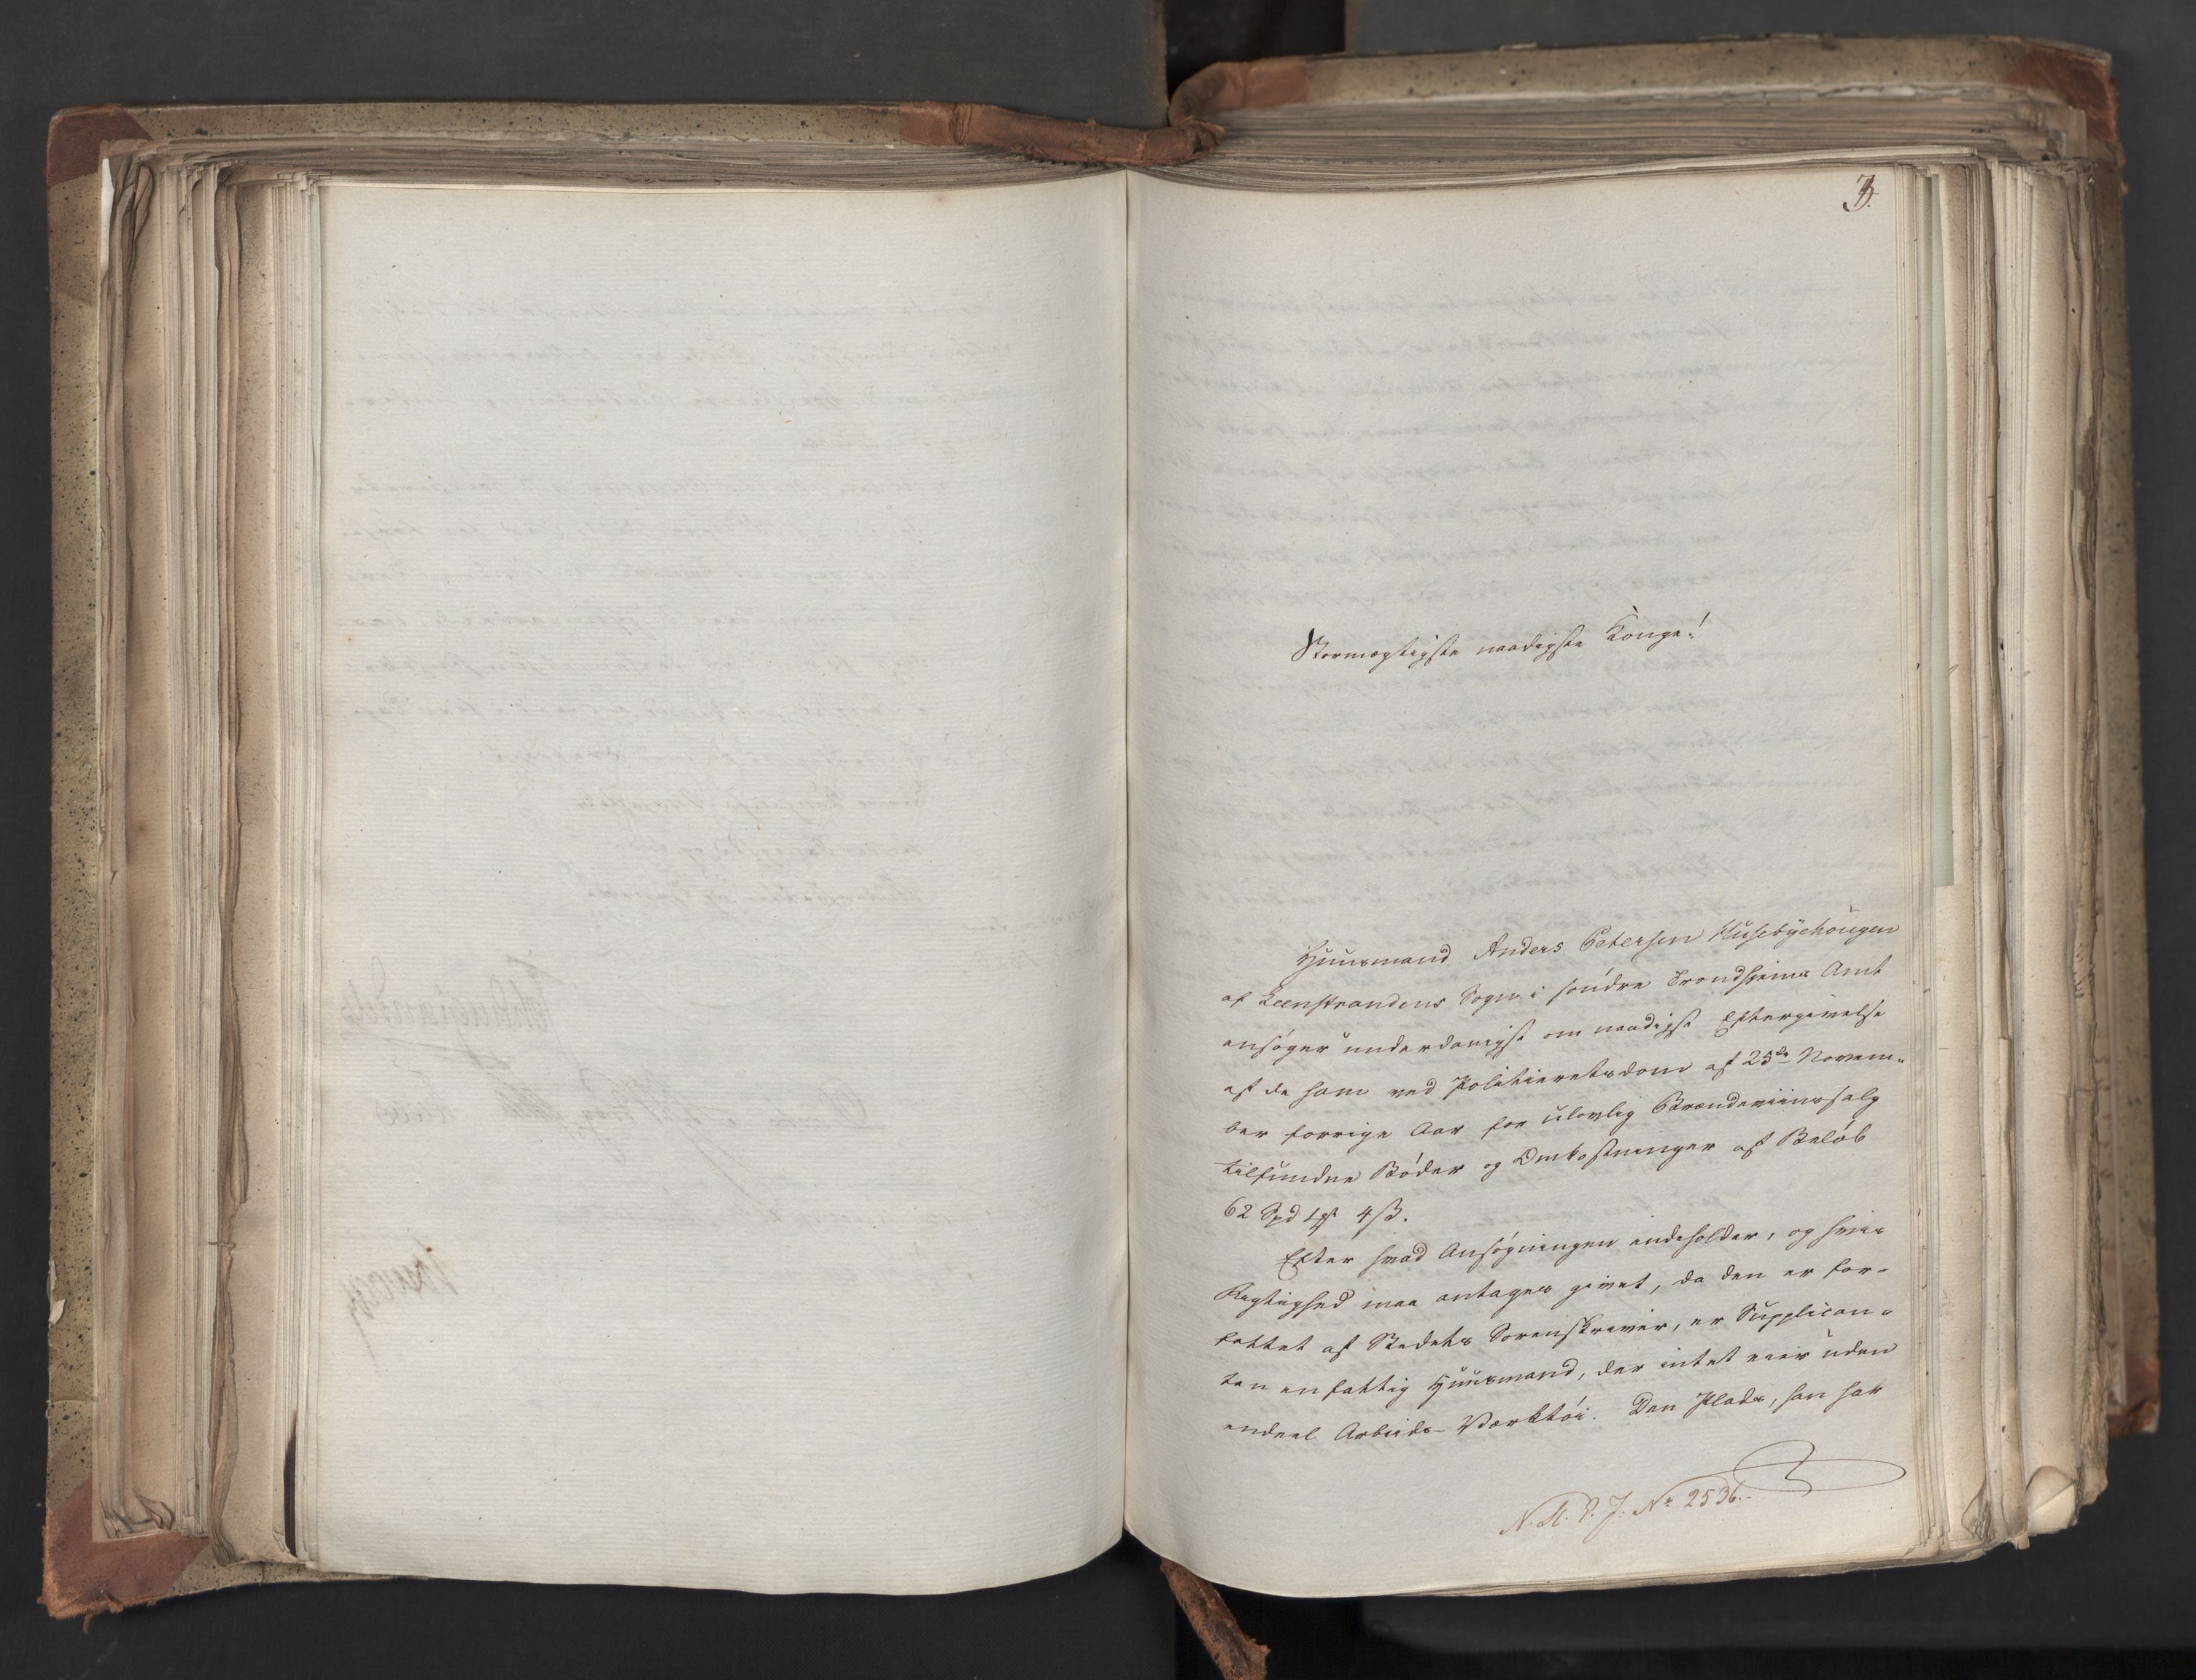 Stormægtigste naadigste Konge!
Huusmand Anders Petersen Husebÿehougen
af Leenstrandens Sogn i søndre Trondhjems Amt
ansøger underdanigst om naadigst Eftergivelse
af de ham ved Politieretsdom af 25de Novem-
ber forrige Aar for ulovlig Brændeviinssalg
tilfundne Bøder og Omkostninger af Beløb
62 Spd 4 ß.
Efter hvad Ansøgningen indeholder, og hvis
Rigtighed maa antages givet, da den er for-
fattet af Stedets Sorenskriver, er Supplican-
ten en fattig Huusmand, der intet eier uden
endeel Arbeids-Værktøi. Den Plads, han har
N. R. P. J: No 2536.